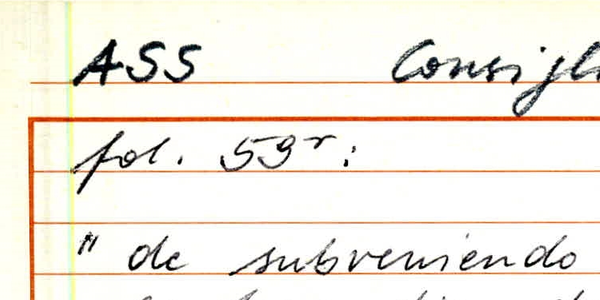 ASS Consigl
fol. 59r:
" de subveniendo